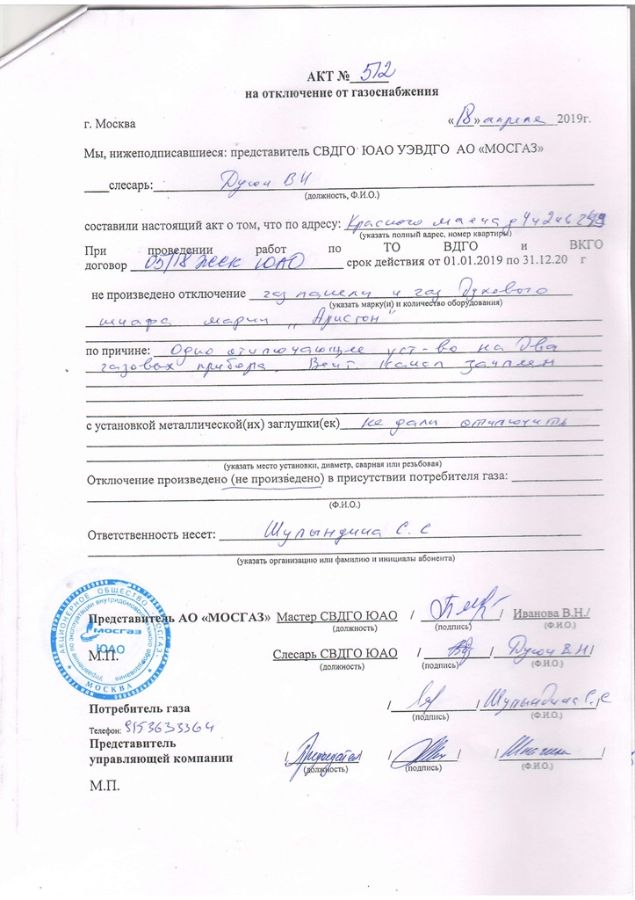 АКТ № 512
на отключение от газоснабжения
г. Москва «18» апреля 2019г.
Мы, нижеподписавшиеся: представитель СВДГО ЮАО УЭВДГО АО «МОСГАЗ»
слесарь: В Н
(должность, Ф.И.О.)
составили настоящий акт о том, что по адресу: Красного маяка д
(указать полный адрес, номер квартиры)
При проведении работ по ТО ВДГО и ВКГО
договор 05/18 ЖСК ЮАО срок действия от 01.01.2019 по 31.12.20 г
не произведено отключение газ панели и газ Духового
(указать марку(и) и количество оборудования)
шкафа марки "Аристон"
по причине: Одно отключающее уст-во на два
газовых прибора Вент канал
с установкой металлической(их) заглушки(ек) не дали отключить
(указать место установки, диаметр, сварная или резьбовая)
Отключение произведено (не произведено) в присутствии потребителя газа:
(Ф.И.О.)
Ответственность несет: Шулындина С. С
(указать организацию или фамилию и инициалы абонента)
АКЦИОНЕРНОЕ ОБЩЕСТВО МОСГАЗ
МОСГАЗ
ЮАО
МОСКВА
Представитель АО «МОСГАЗ» Мастер СВДГО ЮАО / / Иванова В.Н./
(должность) (подпись) (Ф.И.О.)
М.П. Слесарь СВДГО ЮАО / / В Н/
(должность) (подпись) (Ф.И.О.)
Потребитель газа / / Шулындина С. С
(подпись) (Ф.И.О.)
Телефон: 9153633364
Представитель
управляющей компании / / / / /
(должность) (подпись) (Ф.И.О.)
М.П.